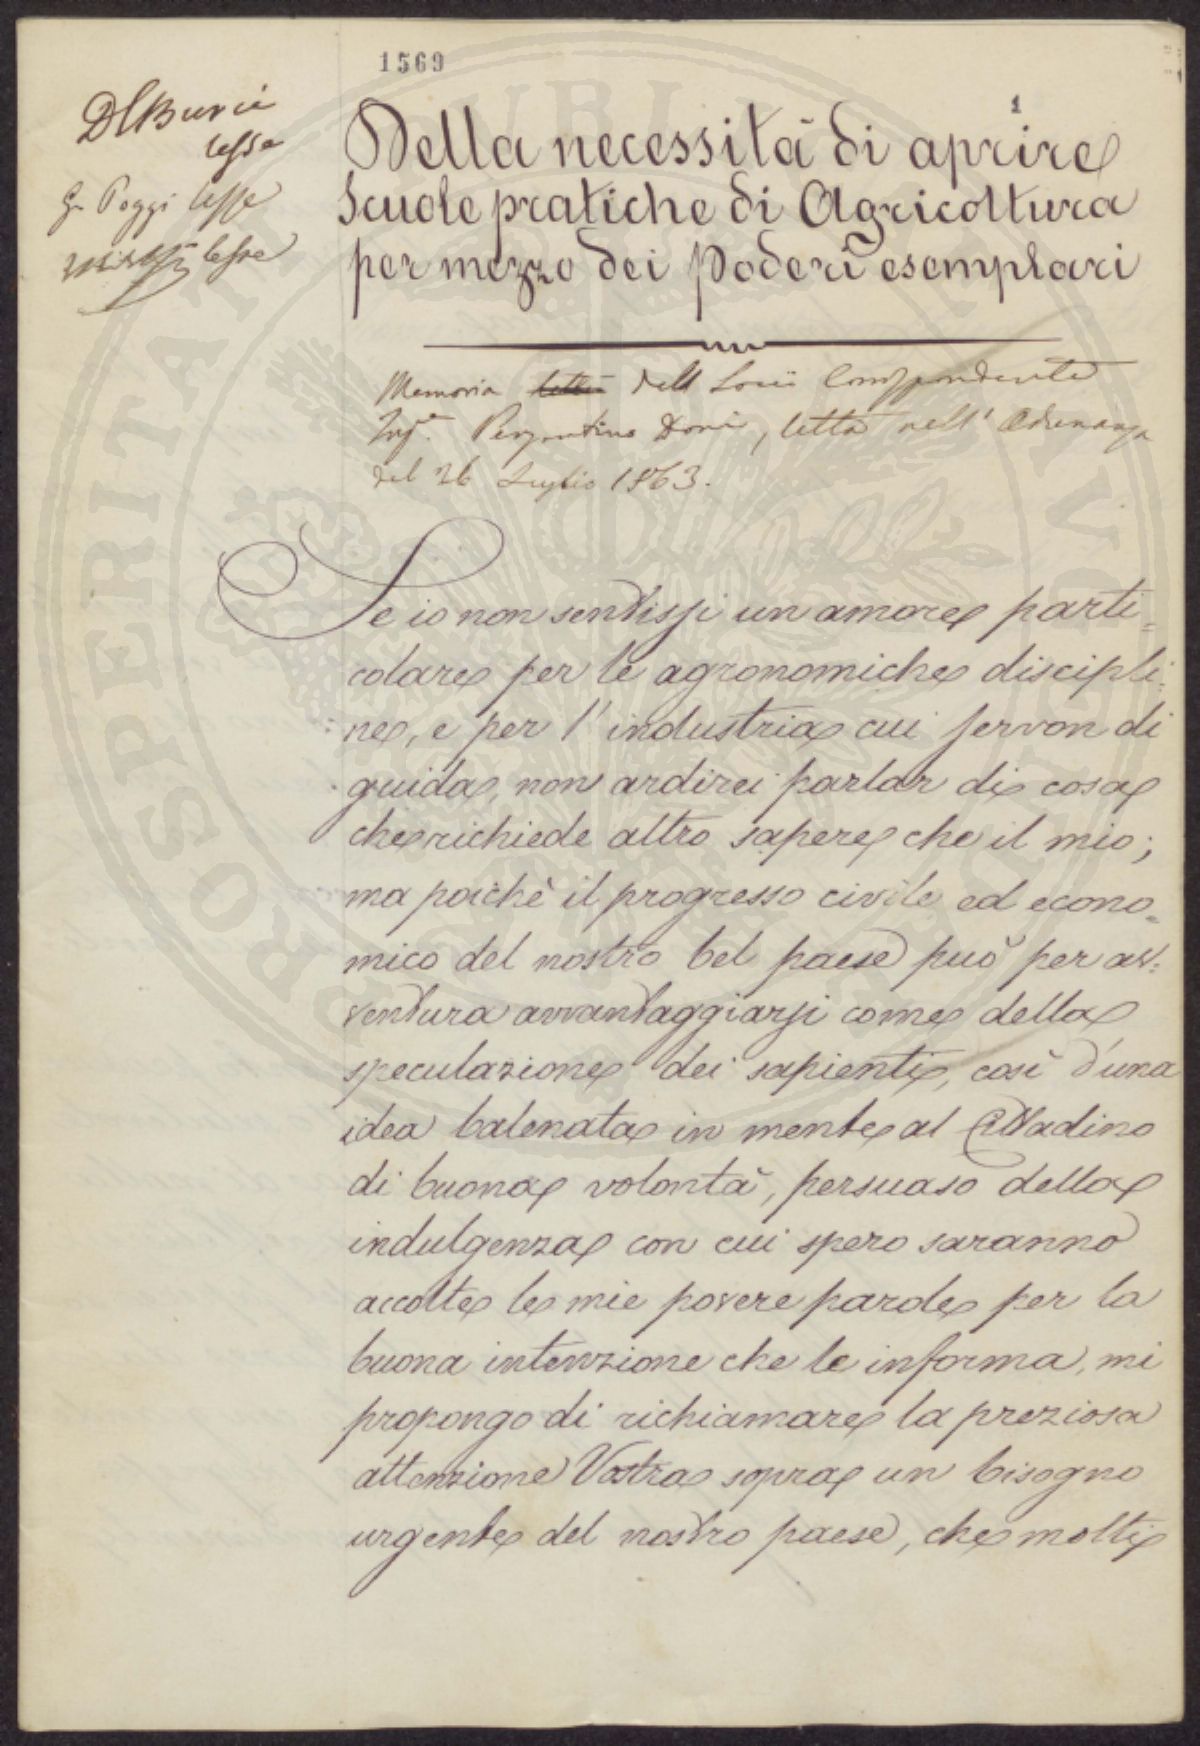 1569
1
Della necessità di aprire
Scuole pratiche di Agricoltura
per mezzo dei Poderi esemplari
lesse
G. Poggi lesse
lesse
Memoria letta dell Socio Corrispondente
Ing.e Doni, letta nell'Adunanza
del 26 Luglio 1863.
Se io non sentissi un amore parti=
colare per le agronomiche discipli=
ne, e per l'industria cui servon di
guida, non ardirei parlar di cosa
che richiede altro sapere che il mio;
ma poichè il progresso civile ed econo=
mico del nostro bel paese può per av=
ventura avvantaggiarsi come della
speculazione dei sapienti, così d'una
idea balenata in mente al Cittadino
di buona volontà, persuaso della
indulgenza con cui spero saranno
accolte le mie povere parole per la
buona intenzione che le informa, mi
propongo di richiamare la preziosa
attenzione Vostra sopra un bisogno
urgente del nostro paese, che molti
PROSPERITATI PUBLICAE